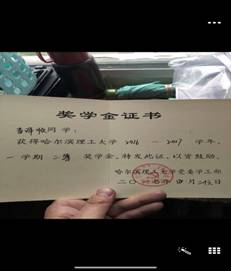 奖学金证书
同学:
获得哈尔滨理工大学 2016 — 2017 学年,
一 学期 二等 奖学金,特发此证,以资鼓励。
哈尔滨理工大学党委学工部
二〇 年 四 月 日